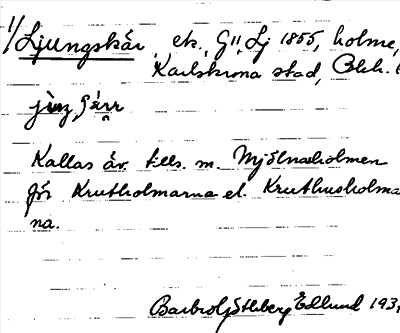 1/ Ljungskär, ek., G11, Lj 1855, holme,
Karlskrona stad, Blek.
Kallas äv. tills. m. Mjölnareholmen
för Krutholmarna el. Kruthusholmar
na.
Barbro Ljstberg Edlund 193